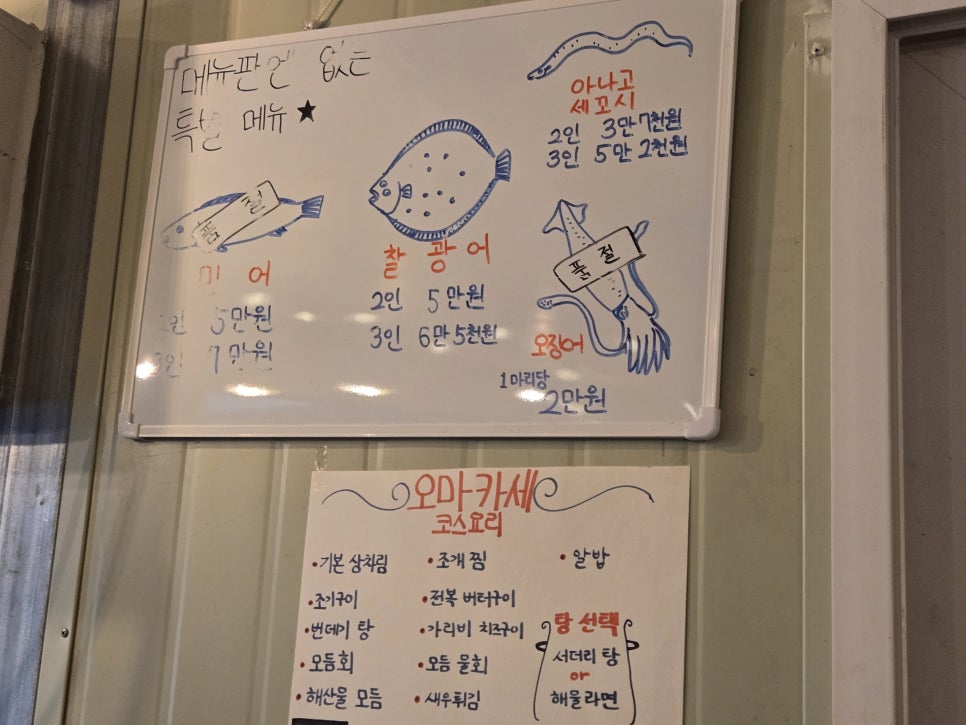 메뉴판엔 없는
특별 메뉴 ★
아나고
세꼬시
2인 3만 7천원
3인 5만 2천원
품절
어
5만원
만원
찰광어
2인 5만원
3인 6만 5천원
품절
오징어
1마리당
2만원
오마카세
코스요리
• 기본 상차림
• 조기구이
• 번데기 탕
• 모듬회
• 해산물 모듬
• 조개찜
• 전복 버터구이
• 가리비 치즈구이
• 모듬 물회
• 새우튀김
• 알밥
탕 선택
서더리 탕
or
해물라면